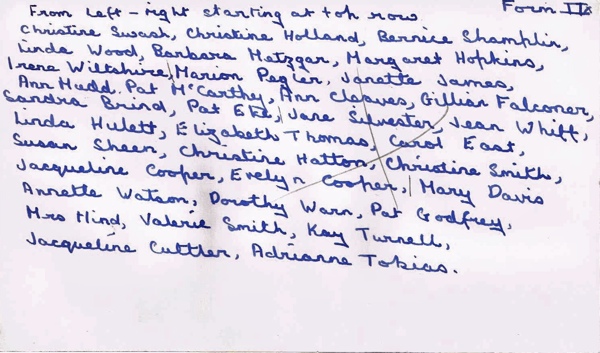 From left - right starting at top row. Form II
Christine Swash, Christine Holland, Bernice Shamplin,
Linda Wood, Barbara Metzgar, Margaret Hopkins,
Irene Wiltshire, Marion Pegler, Janette James,
Ann Mudd. Pat McCarthy, Ann Cleaves, Gillian Falconer,
Sandra Brind, Pat Eke, Jane Silvester, Jean Whiff,
Linda Hulett, Elizabeth Thomas, Carol East,
Susan Sheen, Christine Hatton, Christine Smith,
Jacqueline Cooper, Evelyn Cooper, Mary Davis
Annette Watson, Dorothy Warn, Pat Godfrey,
Mrs Hind, Valerie Smith, Kay Turnell,
Jacqueline Cuttler, Adrianne Tobias.